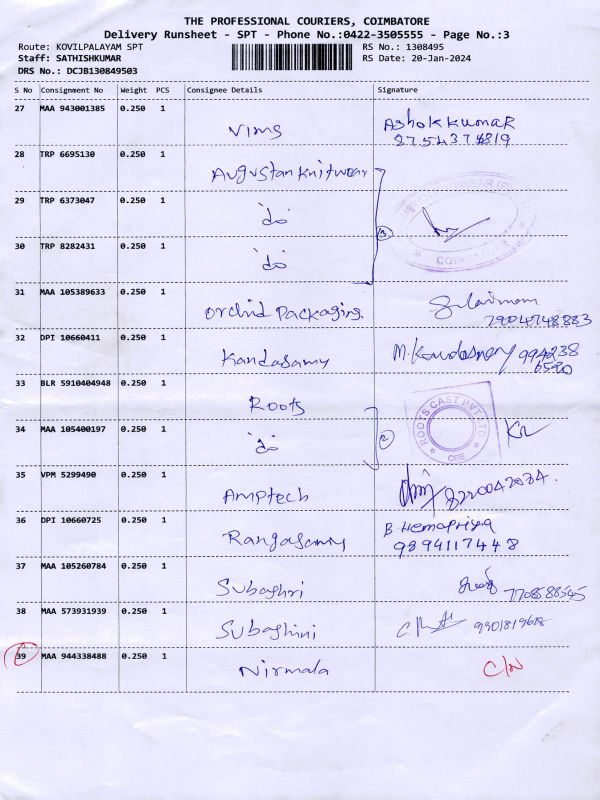 THE PROFESSIONAL COURIERS, COIMBATORE
Delivery Runsheet - SPT - Phone No.:0422-3505555 - Page No.:3
Route: KOVILPALAYAM SPT RS No.: 1308495
Staff: SATHISHKUMAR RS Date: 20-Jan-2024
DRS No.: DCJB130849503
S No Consignment No Weight PCS Consignee Details Signature
27 MAA 943001385 0.250 1 Vims Ashokkumar
8754374819
28 TRP 6695130 0.250 1 Augustan Knitwear
29 TRP 6373047 0.250 1 "do"
3
30 TRP 8282431 0.250 1 "do"
31 MAA 105389633 0.250 1 Orchid Packaging
7904748883
32 DPI 10660411 0.250 1 Kandasamy M. Kandasamy 994238
6580
33 BLR 5910404948 0.250 1 Roots
ROOTS CAST PVT LTD
CBE
34 MAA 105400197 0.250 1 "do" 2
35 VPM 5299490 0.250 1 Amptech
36 DPI 10660725 0.250 1 Rangasamy B. Hemapriya
9894117448
37 MAA 105260784 0.250 1 Subaghri 7708588545
38 MAA 573931939 0.250 1 Subaghini
39 MAA 944338488 0.250 1 Nirmala C/N